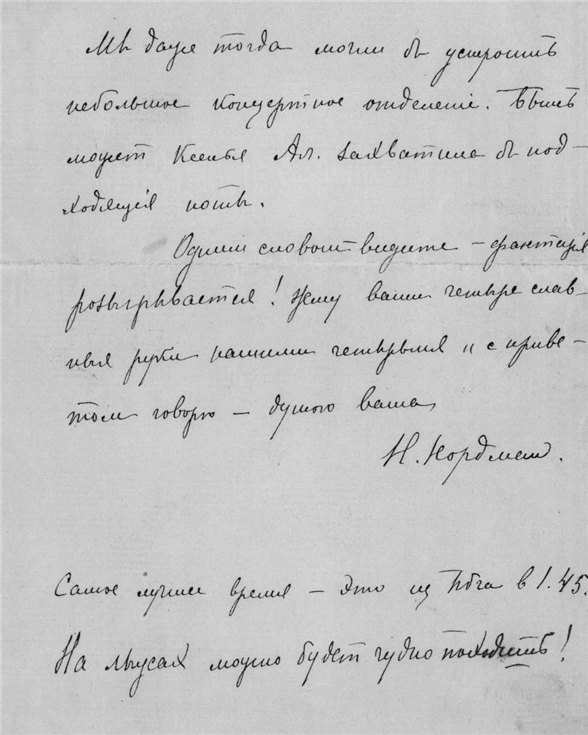 Мы даже тогда могли бы устроить
небольшое концертное отделенiе. Быть
может Ксенья Ал. захватила бы под-
ходящiя ноты.
Одним словом видите – фантазiя
розыгрывается! Жму ваши четыре слав-
ныя руки нашими четырьмя и с приве-
том говорю – душою ваша
Н. Нордман.
Самое лучшее время – это из Пбга в 1.45.
На лыжах можно будет чудно походить!